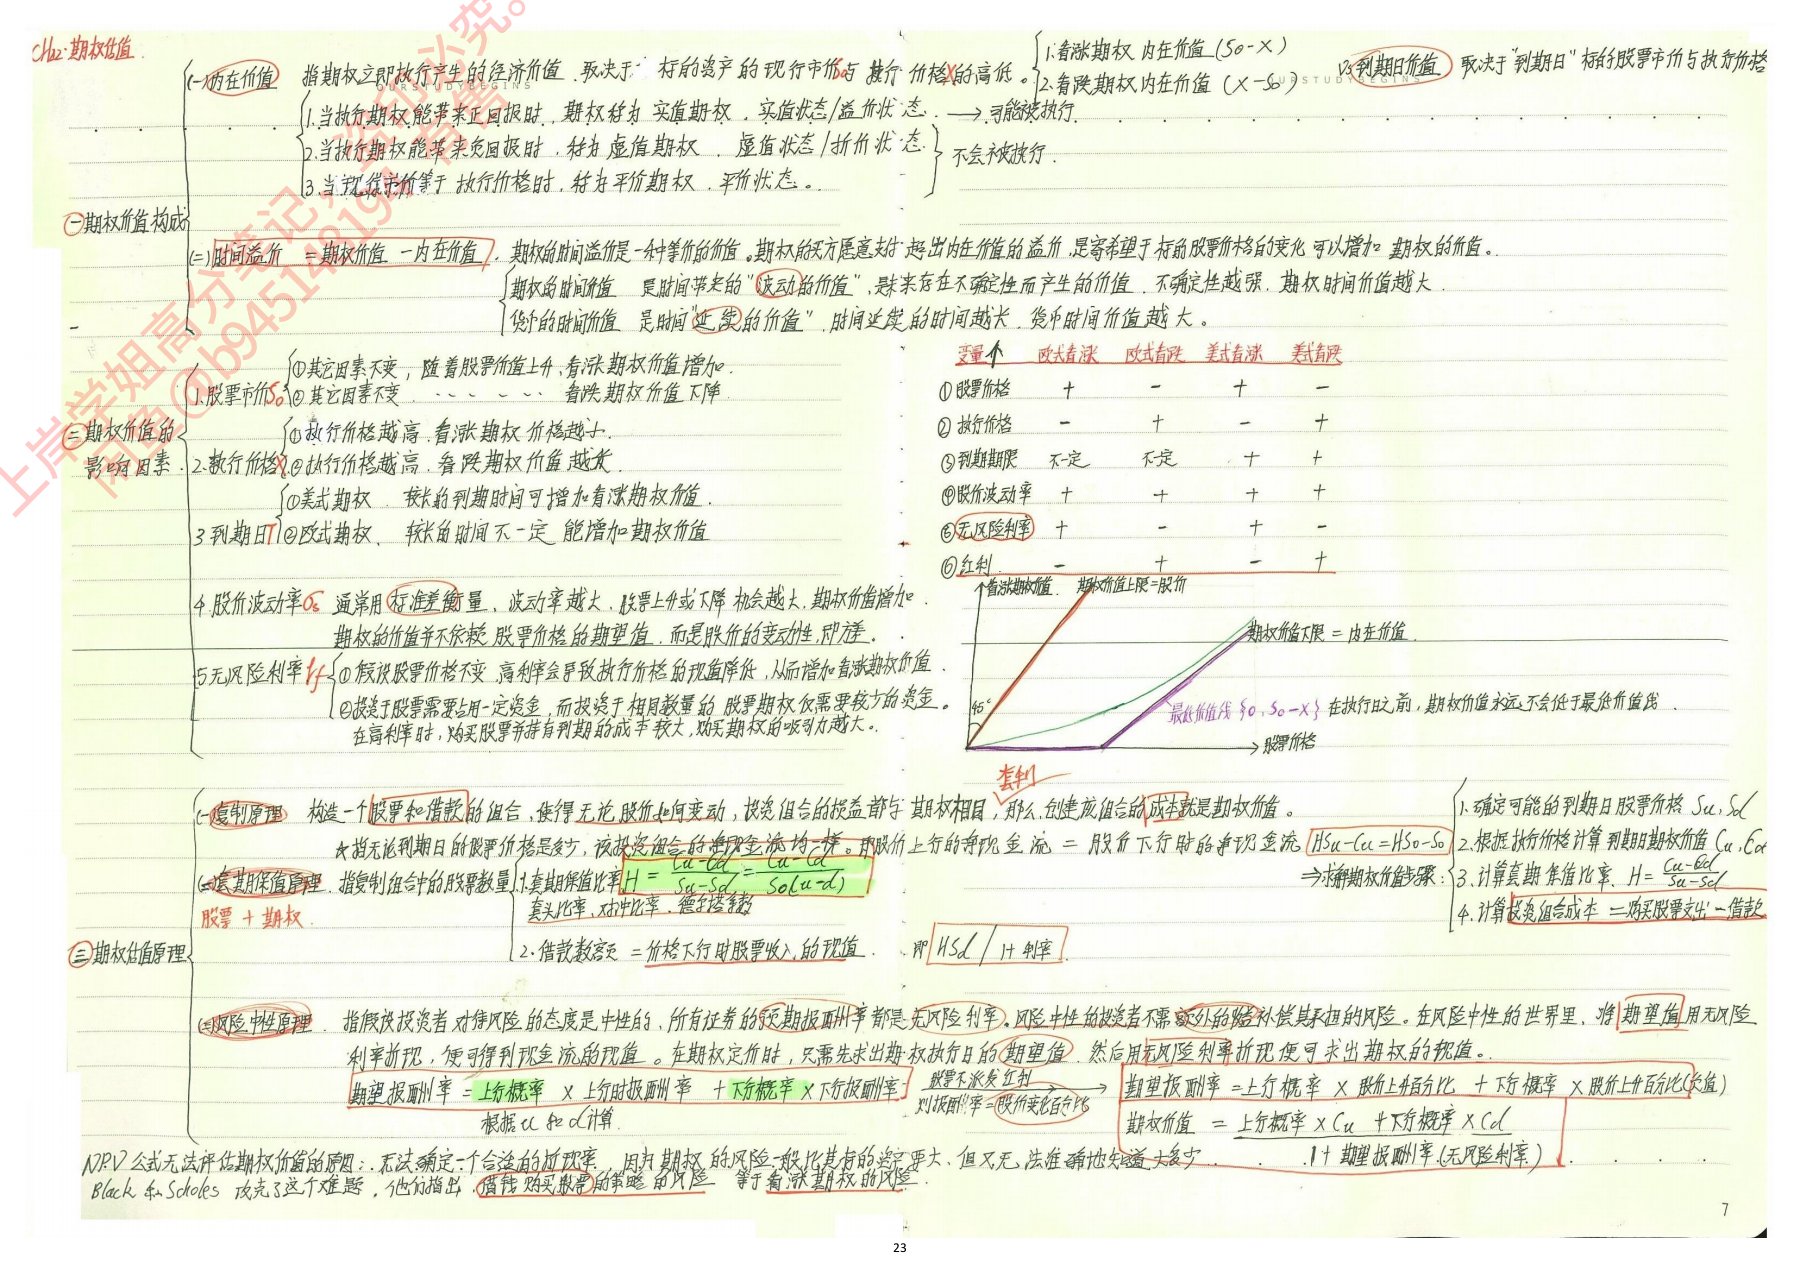 CH22·期权估值
㊀期权价值构成
(一)内在价值 指期权立即执行产生的经济价值.取决于 标的资产的现行市价S0与执行价格X的高低。
1.看涨期权 内在价值(S0-X)
2.看跌期权 内在价值(X-S0)
VS 到期日价值 取决于"到期日"标的股票市价与执行价格
OURSTUDYBEGINS
OURSTUDYBEGINS
1.当执行期权能带来正回报时,期权称为 实值期权.实值状态/溢价状态.→可能被执行
2.当执行期权能带来负回报时.称为虚值期权.虚值状态/折价状态.
不会被执行.
3.当现行市价等于执行价格时.称为平价期权.平价状态。
(二)时间溢价 =期权价值-内在价值.期权的时间溢价是一种等价的价值。期权的买方愿意支付超出内在价值的溢价.是寄希望于标的股票价格的变化可以增加 期权的价值。
期权的时间价值 是时间带来的"波动的价值",是未来存在不确定性而产生的价值.不确定性越强.期权时间价值越大.
货币的时间价值 是时间"延续的价值".时间延续的时间越长.货币时间价值越大。
㊁期权价值的
影响因素.
1.股票市价S0
①其它因素不变,随着股票价值上升,看涨期权价值增加.
②其它因素不变.······看跌期权价值下降.
2.执行价格X
①执行价格越高.看涨期权价格越小.
②执行价格越高.看跌期权价值越大.
3.到期日T
①美式期权.较长的到期时间可增加看涨期权价值.
②欧式期权、较长的时间不一定能增加期权价值
4.股价波动率σs 通常用标准差衡量、波动率越大.股票上升或下降机会越大.期权价值增加.
期权的价值并不依赖股票价格的期望值.而是股价的变动性,即方差。
5.无风险利率rf
①假设股票价格不变.高利率会导致执行价格的现值降低,从而增加看涨期权价值.
②投资于股票需要占用一定资金,而投资于相同数量的股票期权仅需要较少的资金。
在高利率时,购买股票并持有到期的成本较大,购买期权的吸引力越大。
变量↑ 欧式看涨 欧式看跌 美式看涨 美式看跌
①股票价格 + - + -
②执行价格 - + - +
③到期期限 不一定 不一定 + +
④股价波动率 + + + +
⑤无风险利率 + - + -
⑥红利. - + - +
看涨期权价值 期权价值上限=股价
期权价值下限=内在价值
45°
最低价值线{0,S0-X}在执行日之前,期权价值永远不会低于最低价值线.
股票价格
㊂期权估值原理
套利
(一)复制原理 构造一个股票和借款的组合,使得无论股价如何变动,投资组合的损益都与期权相同,那么,创建该组合的成本就是期权价值。
☆指无论到期日的股票价格是多少,该投资组合的净现金流均一样。即股价上行的净现金流 = 股价下行时的净现金流 HSu-Cu=HSD-SD
(二)套期保值原理.指复制组合中的股票数量
股票+期权.
1.套期保值比率 H = Cu-Cd / Su-Sd = Cu-Cd / S0(u-d)
套头比率、对冲比率、德尔塔系数
2.借款数额 =价格下行时股票收入的现值. 即 HSd / 1+利率
⇒求解期权价值步骤:
1.确定可能的到期日股票价格 Su,Sd
2.根据执行价格计算到期日期权价值 Cu,Cd
3.计算套期保值比率、H= Cu-Cd / Su-Sd
4.计算投资组合成本 =购买股票支出-借款
(三)风险中性原理.指假设投资者对待风险的态度是中性的,所有证券的预期报酬率都是无风险利率。风险中性的投资者不需额外的收益补偿其承担的风险。在风险中性的世界里、将期望值用无风险
利率折现,便可得到现金流的现值。在期权定价时,只需先求出期权执行日的期望值.然后用无风险利率折现便可求出期权的现值。
期望报酬率=上行概率 × 上行时报酬率 +下行概率×下行报酬率
根据u和d计算.
股票不派发红利
则报酬率=股价变化百分比
期望报酬率=上行概率 × 股价上升百分比 +下行概率 ×股价上升百分比(负值)
期权价值 = 上行概率×Cu +下行概率×Cd
1+期望报酬率(无风险利率)
NPV公式无法评估期权价值的原因:无法确定一个合适的折现率.因为期权的风险一般比其标的资产要大.但又无法准确地知道大多少
Black和Scholes 攻克了这个难题.他们指出.借钱购买股票的策略的风险 等于看涨期权的风险.
上岸学姐高分笔记,盗印必究。
闲鱼@b94514819有售
7
23